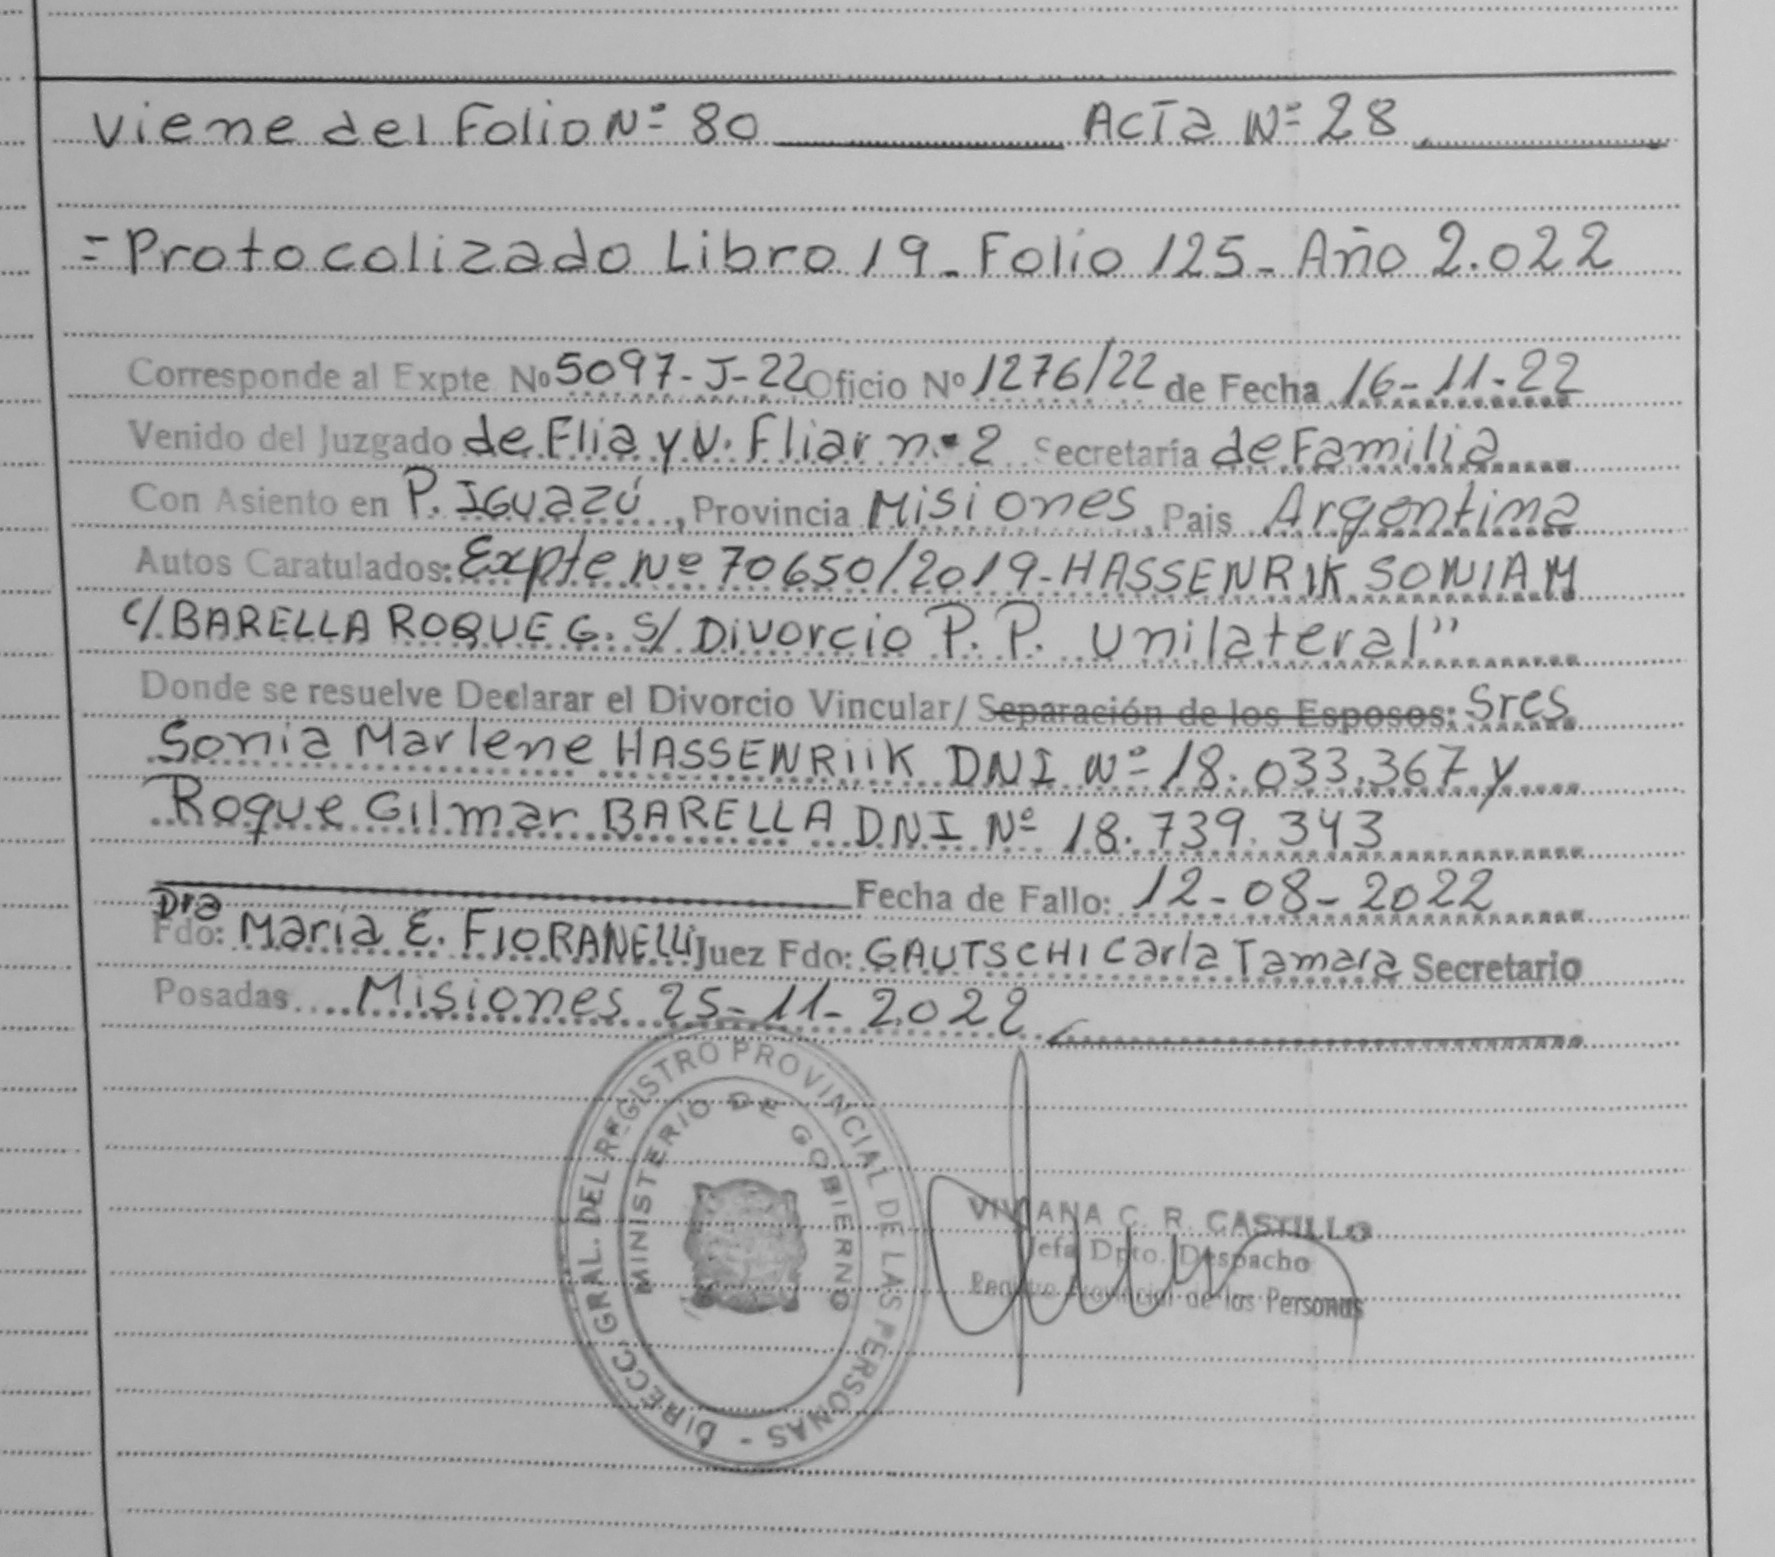 Viene del Folio Nº 80 ACTa Nº 28
= Protocolizado Libro 19 - Folio 125 - Año 2.022
Corresponde al Expte Nº 5097-J-22 Oficio Nº 1276/22 de Fecha 16-11-22
Venido del Juzgado de Flia y V. Fliar nº 2 Secretaría de Familia
Con Asiento en P. IGUazú, Provincia Misiones, Pais Argentina
Autos Caratulados: Expte Nº 70650/2019-HASSENRIK SONIA M
c/ BARELLA ROQUE G. S/ Divorcio P. P. Unilateral"
Donde se resuelve Declarar el Divorcio Vincular/ Separación de los Esposos: Sres
Sonia Marlene HASSENRiiK DNI Nº 18.033.367 y
Roque Gilmar BARELLA DNI Nº 18.739.343
Fecha de Fallo: 12-08-2022
Dra
Fdo: María E. FIORANELLI Juez Fdo: GAUTSCHI Carla Tamara Secretario
Posadas Misiones 25-11-2.022
DIRECC. GRAL. DEL REGISTRO PROVINCIAL DE LAS PERSONAS -
MINISTERIO DE GOBIERNO
VIVIANA C. R. CASTILLO
Jefa Dpto. Despacho
Registro Provincial de las Personas